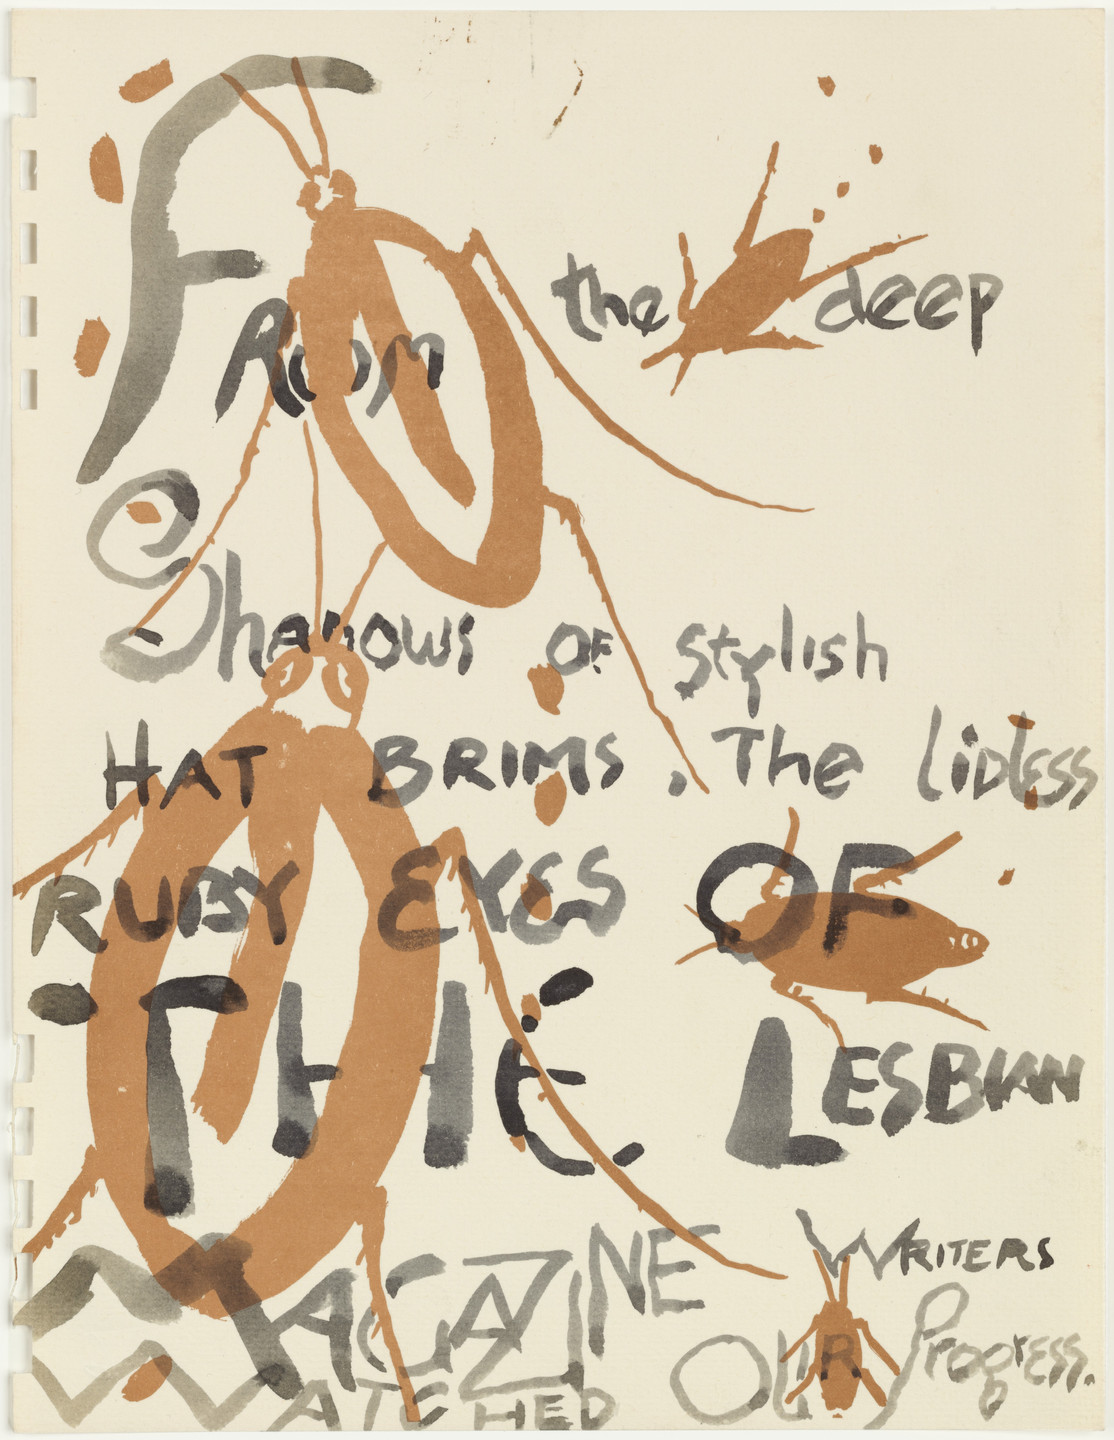 FROM the deep
Shadows OF stylish
HAT BRIMS. The lidless
RUBY EYES OF
THE LESBIAN
MAGAZINE WRITERS
WATCHED OUR Progress.